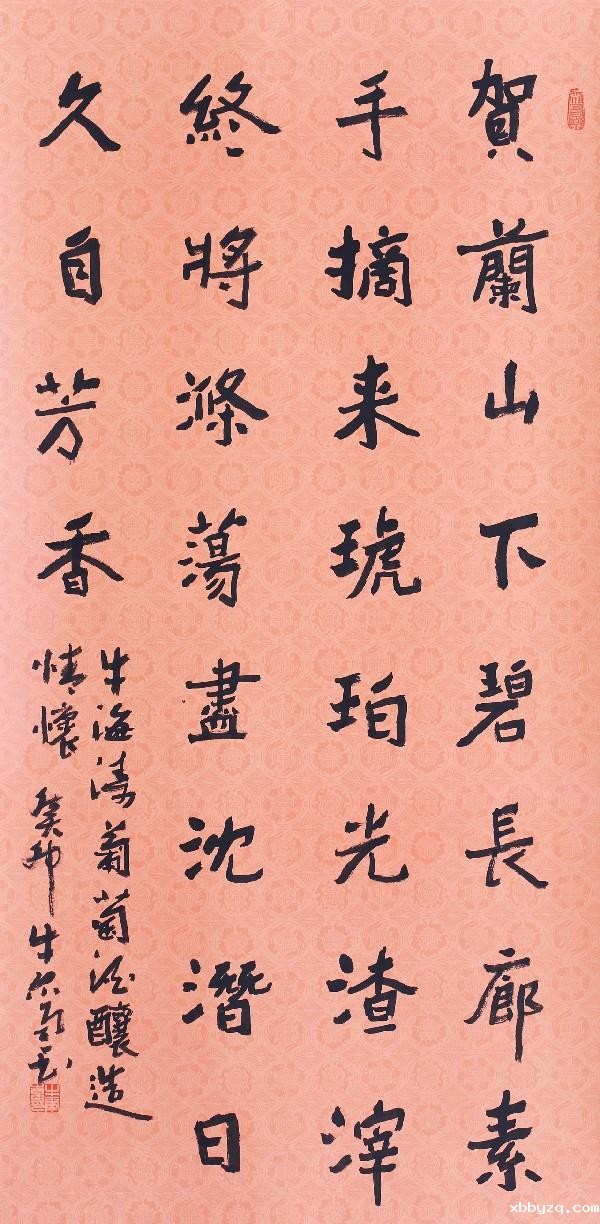 賀蘭山下碧長廊素
手摘来琥珀光渣滓
終將滌蕩盡沈潛日
久自芳香
牛海濤葡萄酒釀造
情懷 癸卯 牛尔
xbbyzq.com